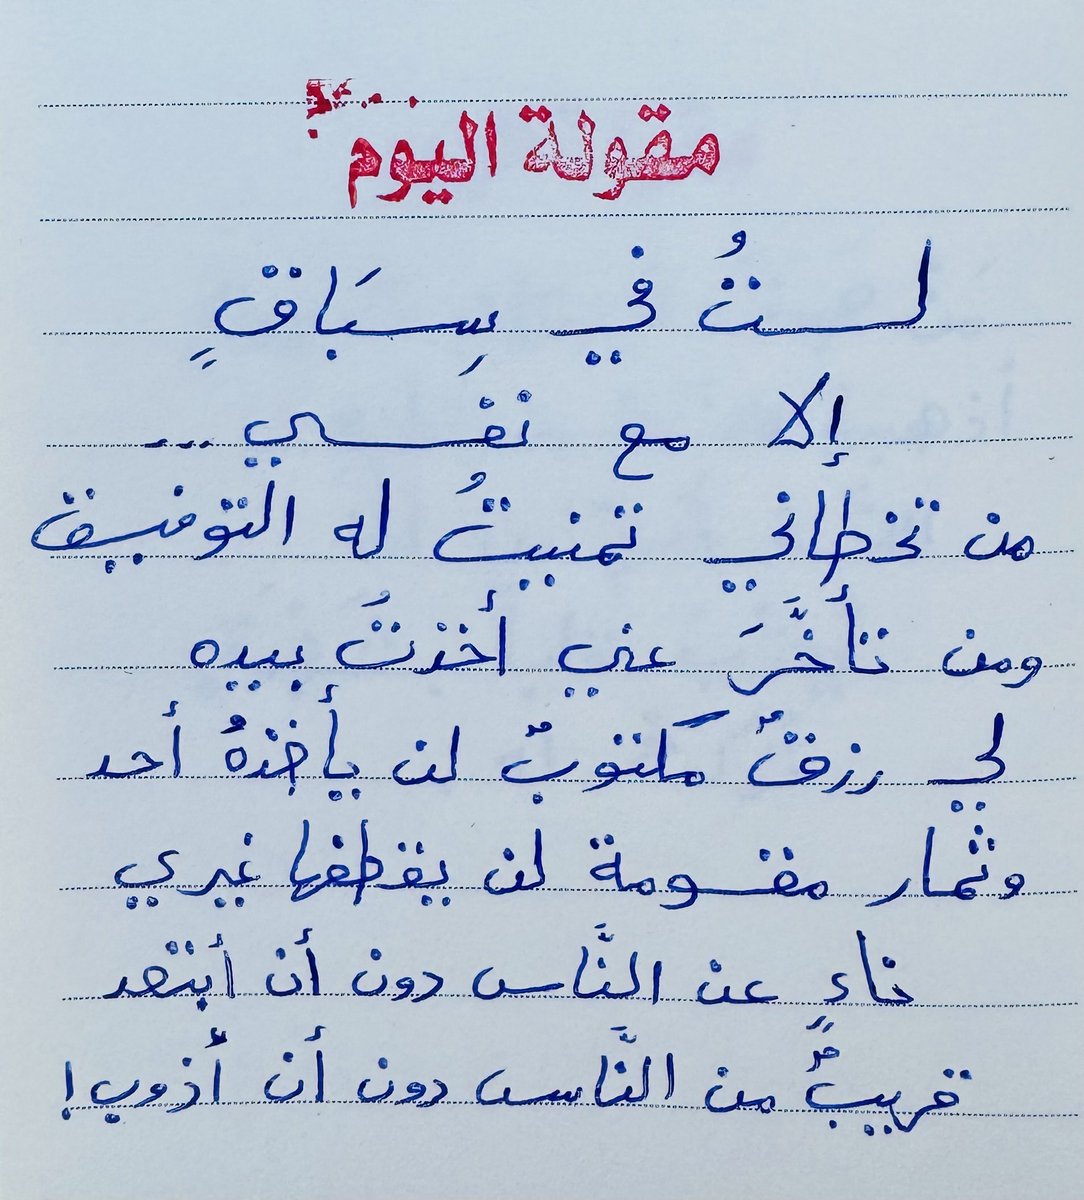 مقولة اليوم
لستُ في سِبَاقٍ
إلا مع نفسي ...
من تخطاني تمنيتُ له التوفيق
ومن تأخَّرَ عني أخذتُ بيده
لي رزقٌ مكتوبٌ لن يأخذهُ أحد
وثمار مقسومة لن يقطفها غيري
ناءٍ عن النَّاس دون أن أبتعد
قريبٌ من النَّاس دون أن أذوب!